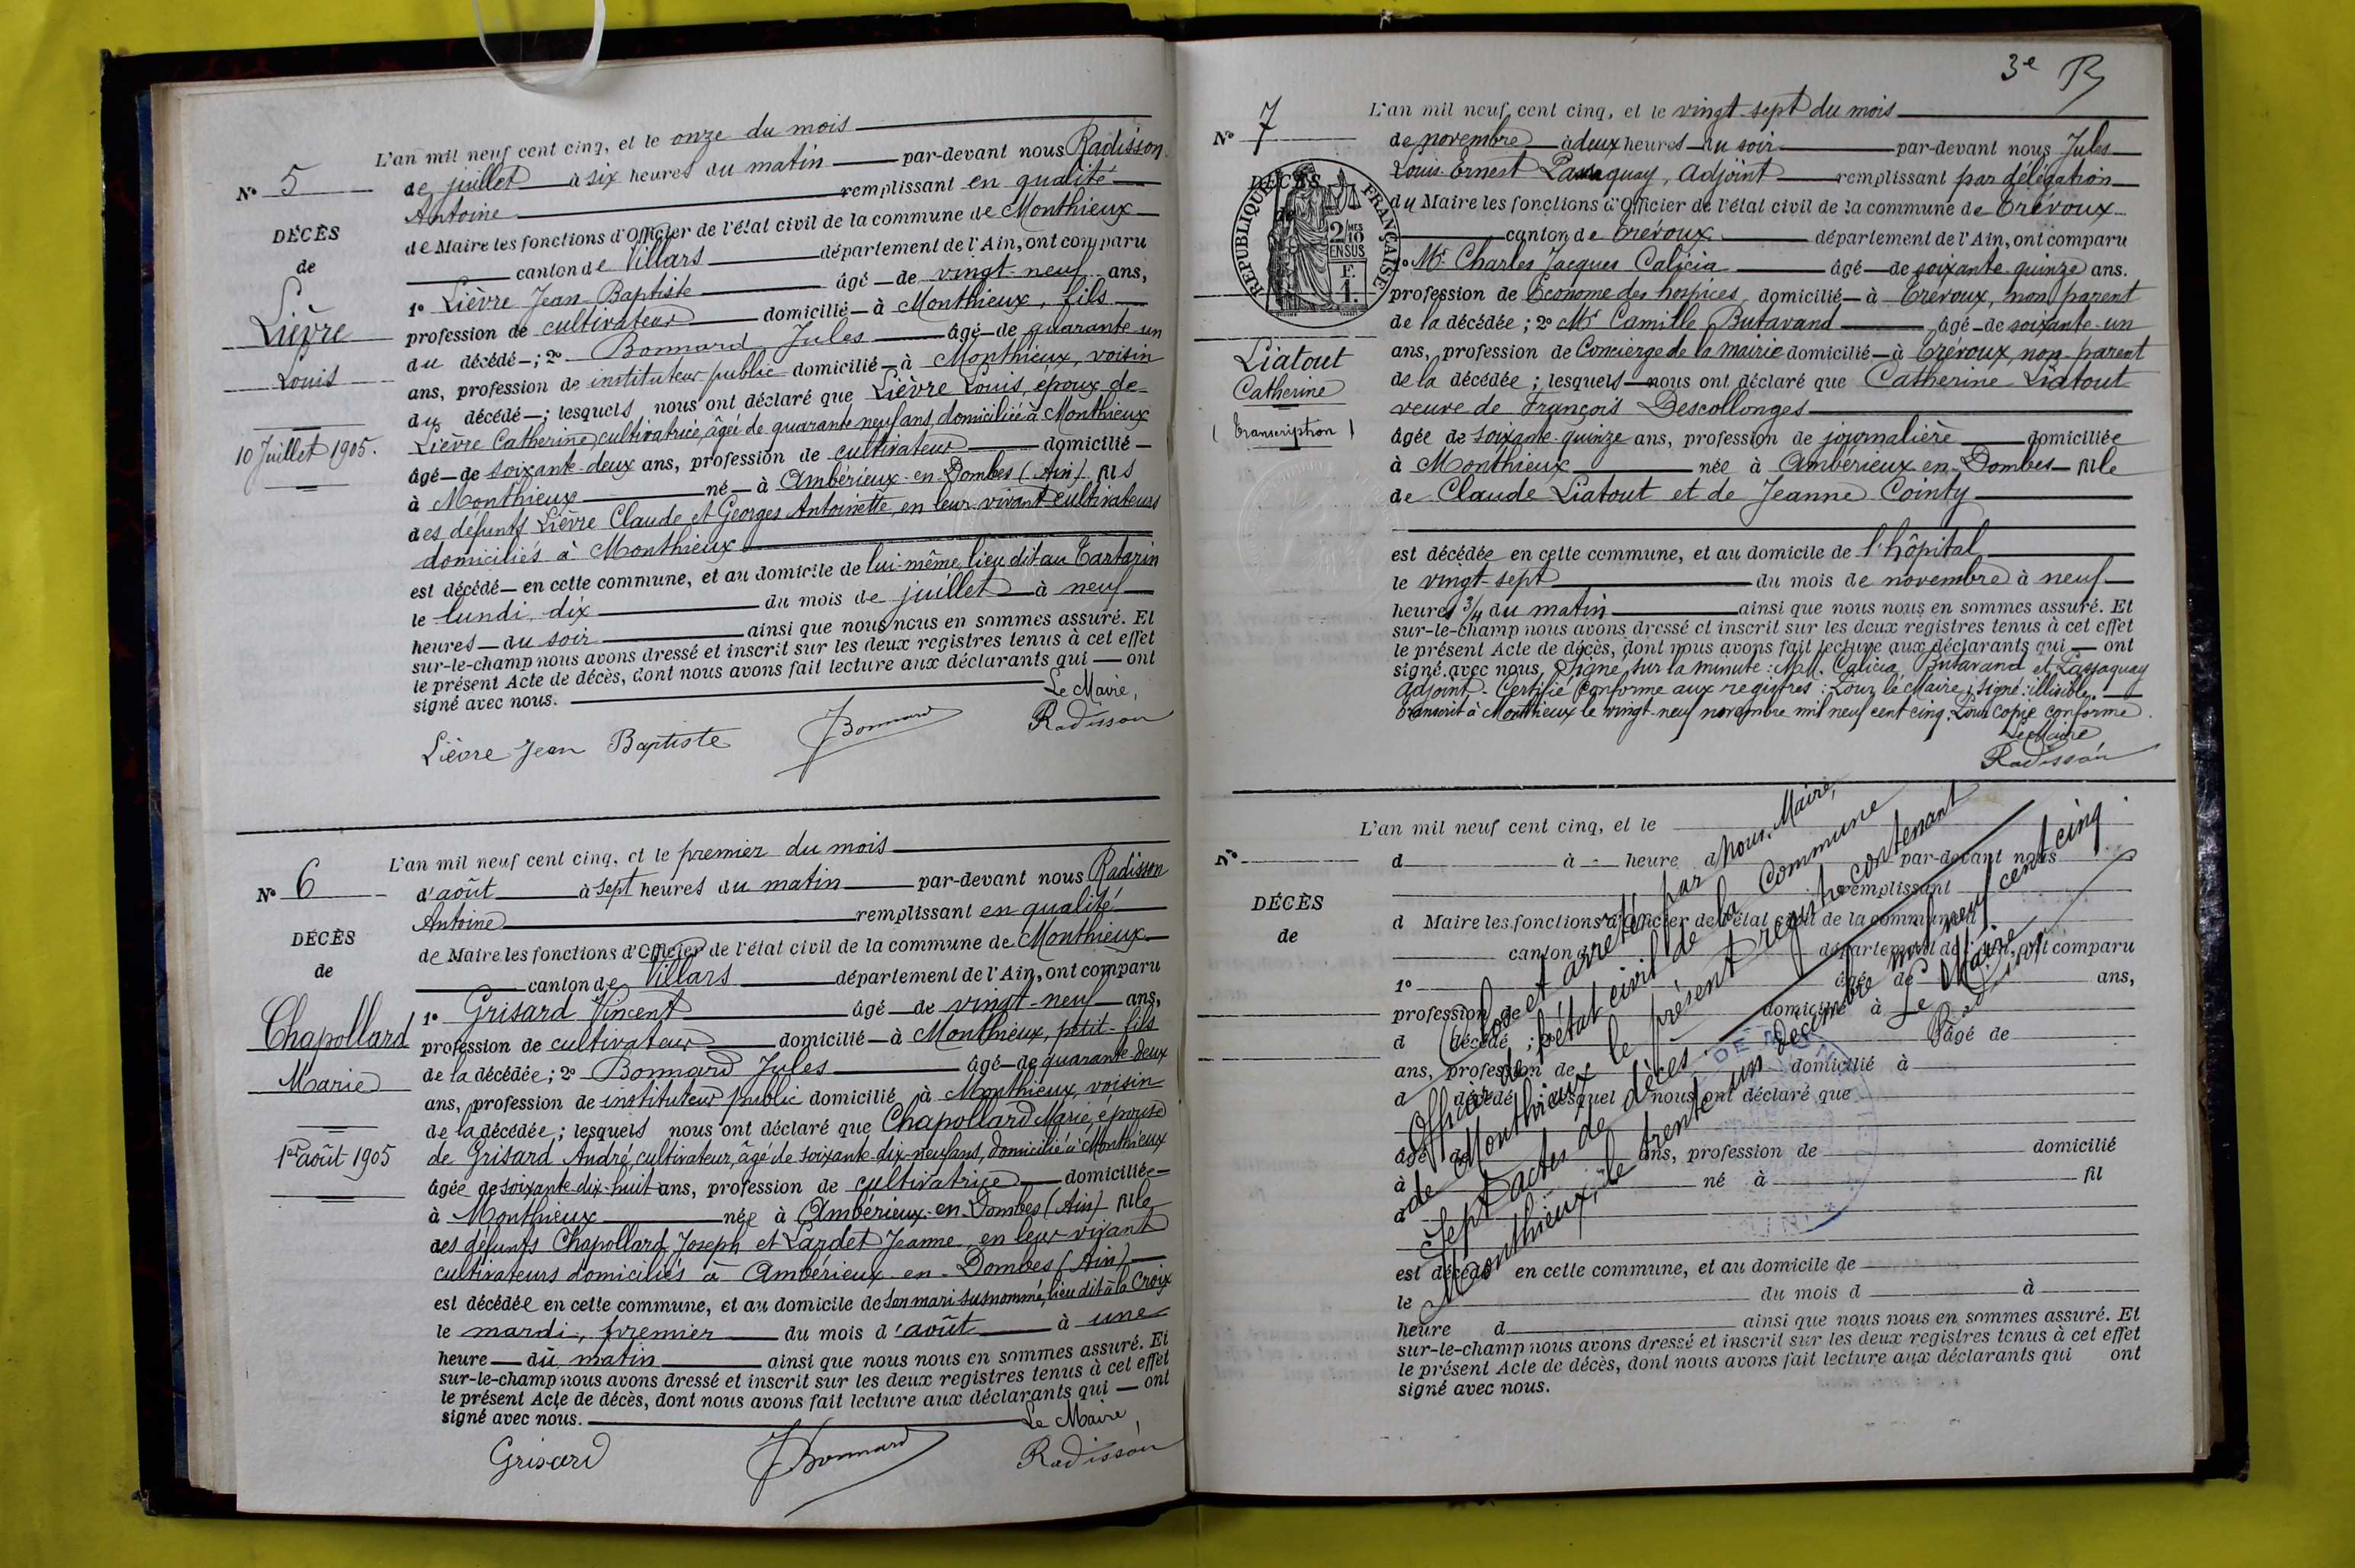 L'an mil neuf cent cinq, et le onze du mois
N° 5 de juillet à six heures du matin par-devant nous Radisson
Antoine remplissant en qualité
DÉCÈS
de Maire les fonctions d'Officier de l'état civil de la commune de Monthieux
de
canton de Villars département de l'Ain, ont comparu
1° Lièvre Jean-Baptiste âgé de vingt-neuf ans,
Lièvre
profession de cultivateur domicilié à Monthieux, fils
du décédé ; 2° Bonnard Jules âgé de quarante un
Louis
ans, profession de instituteur public domicilié à Monthieux, voisin
du décédé ; lesquels nous ont déclaré que Lièvre Louis, époux de
10 Juillet 1905.
Lièvre Catherine, cultivatrice, âgée de quarante neuf ans, domiciliée à Monthieux
âgé de soixante-deux ans, profession de cultivateur domicilié
à Monthieux né à Ambérieux-en-Dombes (Ain) fils
des défunts Lièvre Claude et Georges Antoinette, en leur vivant cultivateurs
domiciliés à Monthieux
est décédé en cette commune, et au domicile de lui-même, lieu dit au Tartarin
le lundi dix du mois de juillet à neuf
heures du soir ainsi que nous nous en sommes assuré. Et
sur-le-champ nous avons dressé et inscrit sur les deux registres tenus à cet effet
le présent Acte de décès, dont nous avons fait lecture aux déclarants qui ont
signé avec nous.
Le Maire,
Lièvre Jean Baptiste JBonnard Radisson
L'an mil neuf cent cinq, et le premier du mois
N° 6 d'août à sept heures du matin par-devant nous Radisson
Antoine remplissant en qualité
DÉCÈS
de Maire les fonctions d'Officier de l'état civil de la commune de Monthieux
de
canton de Villars département de l'Ain, ont comparu
1° Grisard Vincent âgé de vingt-neuf ans,
Chapollard
profession de cultivateur domicilié à Monthieux, petit-fils
de la décédée ; 2° Bonnard Jules âgé de quarante-deux
Marie
ans, profession de instituteur public domicilié à Monthieux, voisin
de la décédée ; lesquels nous ont déclaré que Chapollard Marie, épouse
1er août 1905
de Grisard André, cultivateur, âgé de soixante-dix-neuf ans, domicilié à Monthieux
âgée de soixante-dix-huit ans, profession de cultivatrice domiciliée
à Monthieux née à Ambérieux-en-Dombes (Ain) fille
des défunts Chapollard Joseph et Lardet Jeanne, en leur vivant
cultivateurs domiciliés à Ambérieux-en-Dombes (Ain)
est décédée en cette commune, et au domicile de son mari susnommé, lieu dit à la Croix
le mardi, premier du mois d'août à une
heure du matin ainsi que nous nous en sommes assuré. Et
sur-le-champ nous avons dressé et inscrit sur les deux registres tenus à cet effet
le présent Acte de décès, dont nous avons fait lecture aux déclarants qui ont
signé avec nous.
Le Maire,
Grisard JBonnard Radisson
3e
L'an mil neuf cent cinq, et le vingt-sept du mois
N° 7 de novembre à deux heures du soir par-devant nous Jules
Louis Ernest Passaquay, Adjoint remplissant par délégation
DÉCÈS
de
RÉPUBLIQUE FRANÇAISE
2/10 MES
EN SUS
F. 1.
du Maire les fonctions d'Officier de l'état civil de la commune de Trévoux
canton de Trévoux département de l'Ain, ont comparu
1° Mr Charles Jacques Calicia âgé de soixante-quinze ans.
profession de Econome des hospices domicilié à Trévoux, non parent
de la décédée ; 2° Mr Camille Butavand âgé de soixante-un
Liatout
Catherine
(Transcription)
ans, profession de Concierge de la mairie domicilié à Trévoux, non parent
de la décédée ; lesquels nous ont déclaré que Catherine Liatout
veuve de François Descollonges
âgée de soixante-quinze ans, profession de journalière domiciliée
à Monthieux née à Ambérieux-en-Dombes fille
de Claude Liatout et de Jeanne Cointy
est décédée en cette commune, et au domicile de l'hôpital
le vingt-sept du mois de novembre à neuf
heures 3/4 du matin ainsi que nous nous en sommes assuré. Et
sur-le-champ nous avons dressé et inscrit sur les deux registres tenus à cet effet
le présent Acte de décès, dont nous avons fait lecture aux déclarants qui ont
signé avec nous. Signé sur la minute : MM. Calicia, Butavand et Passaquay
adjoint. Certifié conforme aux registres : Pour le Maire, signé : illisible.
Transcrit à Monthieux le vingt-neuf novembre mil neuf cent cinq. Pour copie conforme
Le Maire
Radisson
L'an mil neuf cent cinq, et le
N° d à heure d par-devant nous
remplissant
DÉCÈS
d Maire les fonctions d'Officier de l'état civil de la commune d
de
canton d département de l'Ain, ont comparu
1° âgé de ans,
profession de domicilié à
d décédé ; 2° âgé de
ans, profession de domicilié à
d décédé ; lesquel nous ont déclaré que
âgé de ans, profession de domicilié
à né à fil
d
est décédé en cette commune, et au domicile de
le du mois d à
heure d ainsi que nous nous en sommes assuré. Et
sur-le-champ nous avons dressé et inscrit sur les deux registres tenus à cet effet
le présent Acte de décès, dont nous avons fait lecture aux déclarants qui ont
signé avec nous.
Clos et arrêté par nous, Maire,
Officier de l'état civil de la Commune
de Monthieux le présent registre contenant
sept actes de décès.
Monthieux, le trente un décembre mil neuf cent cinq.
Le Maire
Radisson